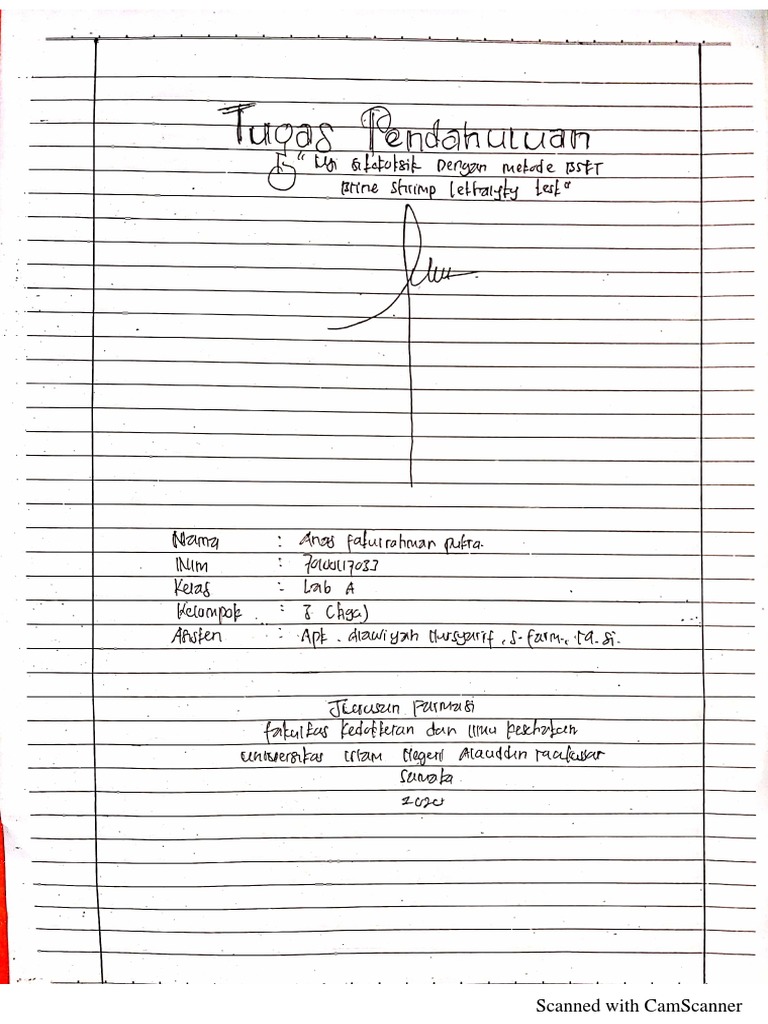 Tugas Pendahuluan
"Uji Sitotoksik Dengan metode BSLT
Brine Shrimp lethalyty test"
Nama : Anas faturrahman putra.
NIM : 70100117033
Kelas : Lab A
Kelompok : 3 (tiga)
Asisten : Apt. Alawiyah Nursyarif, S.farm., M.Si.
Jurusan Farmasi
fakultas kedokteran dan Ilmu kesehatan
universitas Islam Negeri Alauddin Makassar
Samata
2020
Scanned with CamScanner